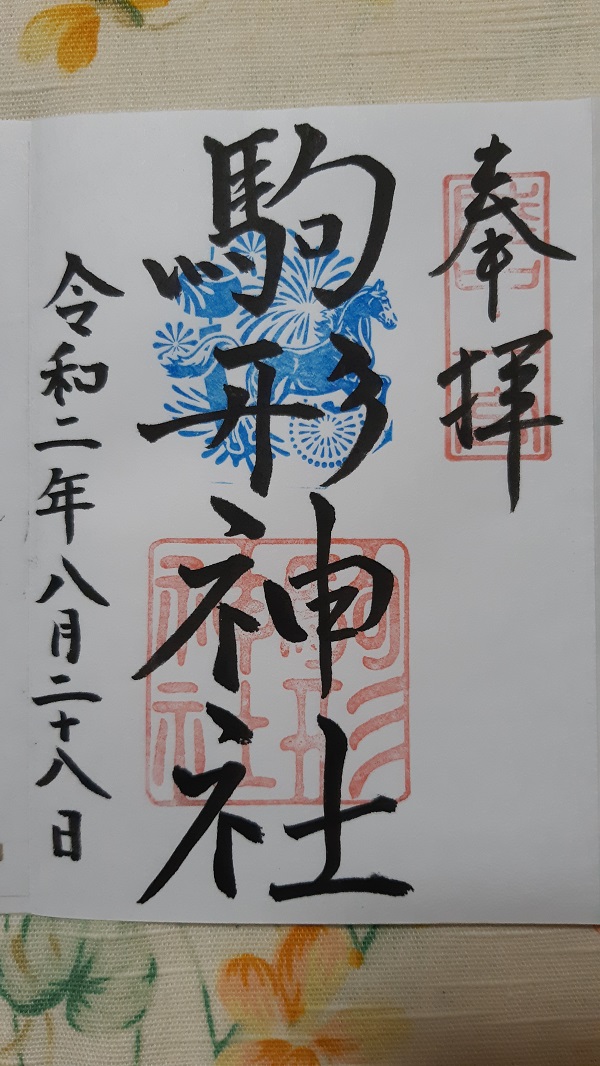 奉拝
駒形神社
令和二年八月二十八日
駒形
神社